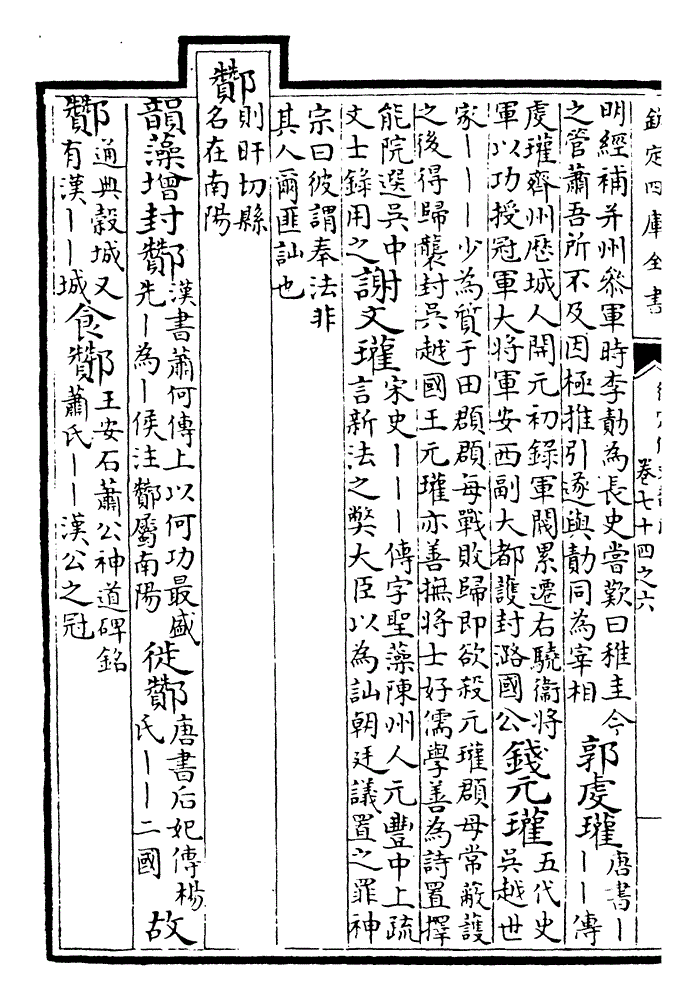 欽定四庫全書
卷七十四之六
明經補并州叅軍時李勣為長史嘗歎曰稚圭今
之管蕭吾所不及因極推引遂與勣同為宰相
郭虔瓘
唐書丨
丨丨傳
虔瓘齊州歷城人開元初錄軍閥累遷右驍衞將
軍以功授冠軍大將軍安西副大都護封潞國公
錢元瓘
五代史
吳越世
家丨丨丨少為質于田頵頵每戰敗歸即欲殺元瓘頵母常蔽護
之後得歸襲封吳越國王元瓘亦善撫將士好儒學善為詩置擇
能院選吳中
文士錄用之
謝文瓘
宋史丨丨丨傳字聖藻陳州人元豐中上疏
言新法之弊大臣以為訕朝廷議置之罪神
宗曰彼謂奉法非
其人爾匪訕也
酇
則旰切縣
名在南陽
韻藻增封酇
漢書蕭何傳上以何功最盛
先丨為丨侯注酇屬南陽
徙酇
唐書后妃傳楊
氏丨丨二國
故
酇
通典穀城又
有漢丨丨城
食酇
王安石蕭公神道碑銘
蕭氏丨丨漢公之冠